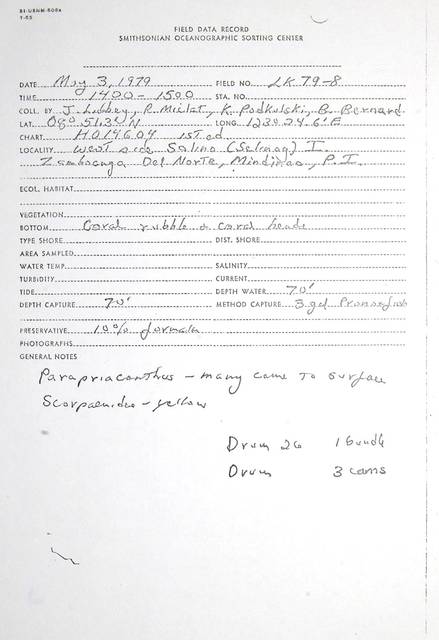 SI-USNM-508a
1-65
FIELD DATA RECORD
SMITHSONIAN OCEANOGRAPHIC SORTING CENTER
DATE May 3, 1979 FIELD NO. LK 79-8
TIME 1400-1500 STA. NO.
COLL. BY J. Libbey, R. Miclat, K. Podkulski, B. Bernard
LAT. 08° 51.3' N LONG. 123° 24.6' E
CHART HO14604 1st ed
LOCALITY West side Salino (Selinog) I.
Zamboanga Del Norte, Mindinao, P.I.
ECOL. HABITAT
VEGETATION
BOTTOM Coral rubble & coral heads
TYPE SHORE DIST. SHORE
AREA SAMPLED
WATER TEMP. SALINITY
TURBIDITY CURRENT
TIDE DEPTH WATER 70'
DEPTH CAPTURE 70' METHOD CAPTURE 3 gal Pronoxfish
PRESERVATIVE 10% formalin
PHOTOGRAPHS
GENERAL NOTES
Parapriacanthus - many came to surface
Scorpaenidae - yellow
Drum 26 1 bundle
Drum 3 cans